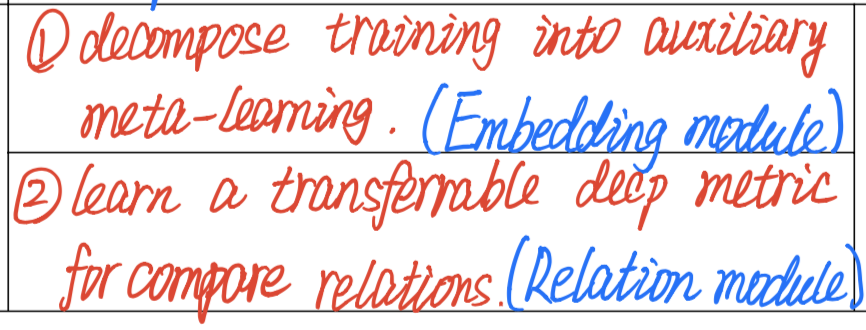 ① decompose training into auxiliary
meta-learning. (Embedding module)
② learn a transferrable deep metric
for compare relations. (Relation module)